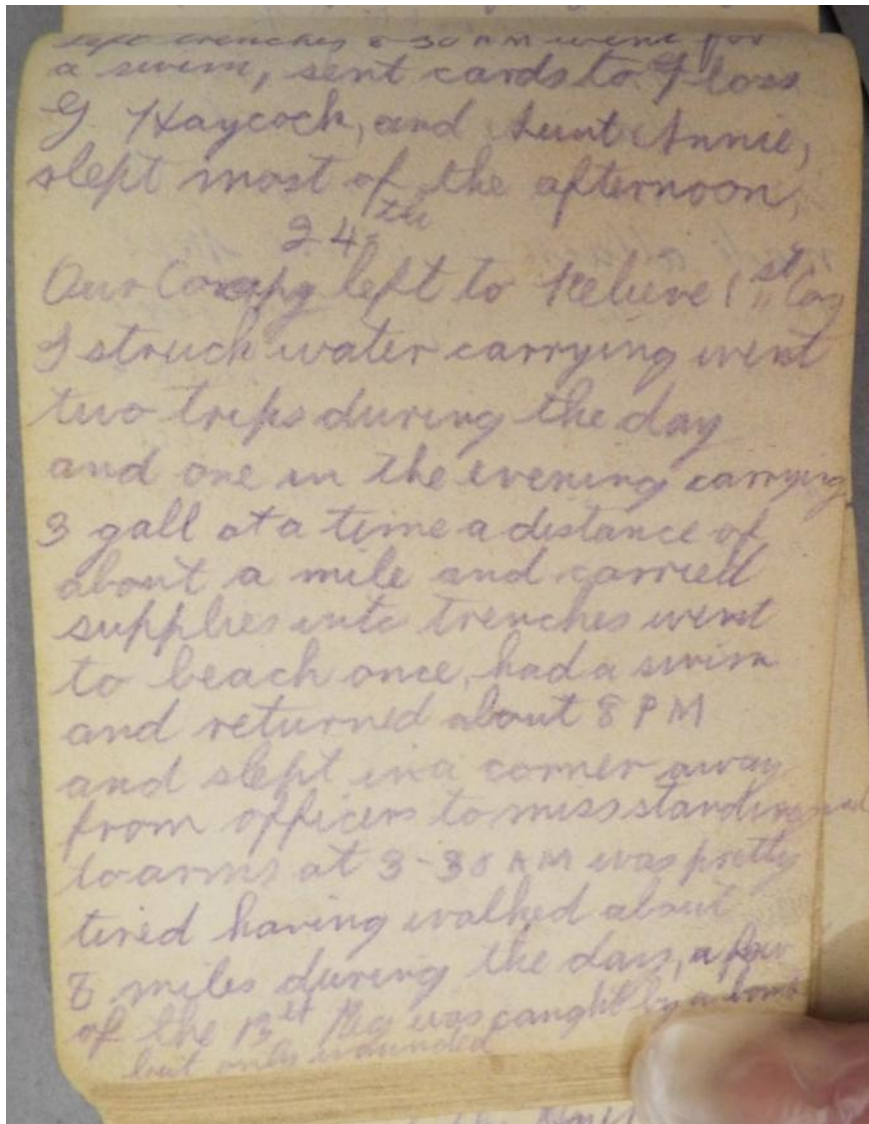 left trenches 8-30 AM went for
a swim, sent cards to Floss
G. Haycock, and Aunt Annie,
slept most of the afternoon,
24th
Our Compy left to relieve 1st Coy
I struck water carrying went
two trips during the day
and one in the evening carrying
3 gall at a time a distance of
about a mile and carried
supplies into trenches went
to beach once, had a swim
and returned about 8 PM
and slept in a corner away
from officers to miss standing
to arms at 3-30 AM was pretty
tired having walked about
8 miles during the day, a few
of the 13th Reg was caught by a bomb
but only wounded